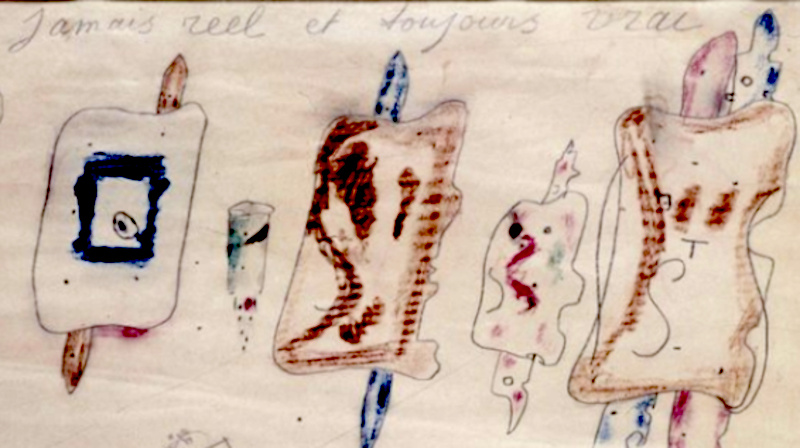 Jamais reel et toujours vrai